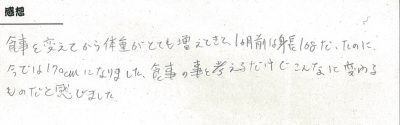 感想
食事を変えてから体重がとても増えてきて、1ヵ月前は身長168だったのに、
今では170cmになりました。食事の事を考えるだけでこんなに変わる
ものだと感じました